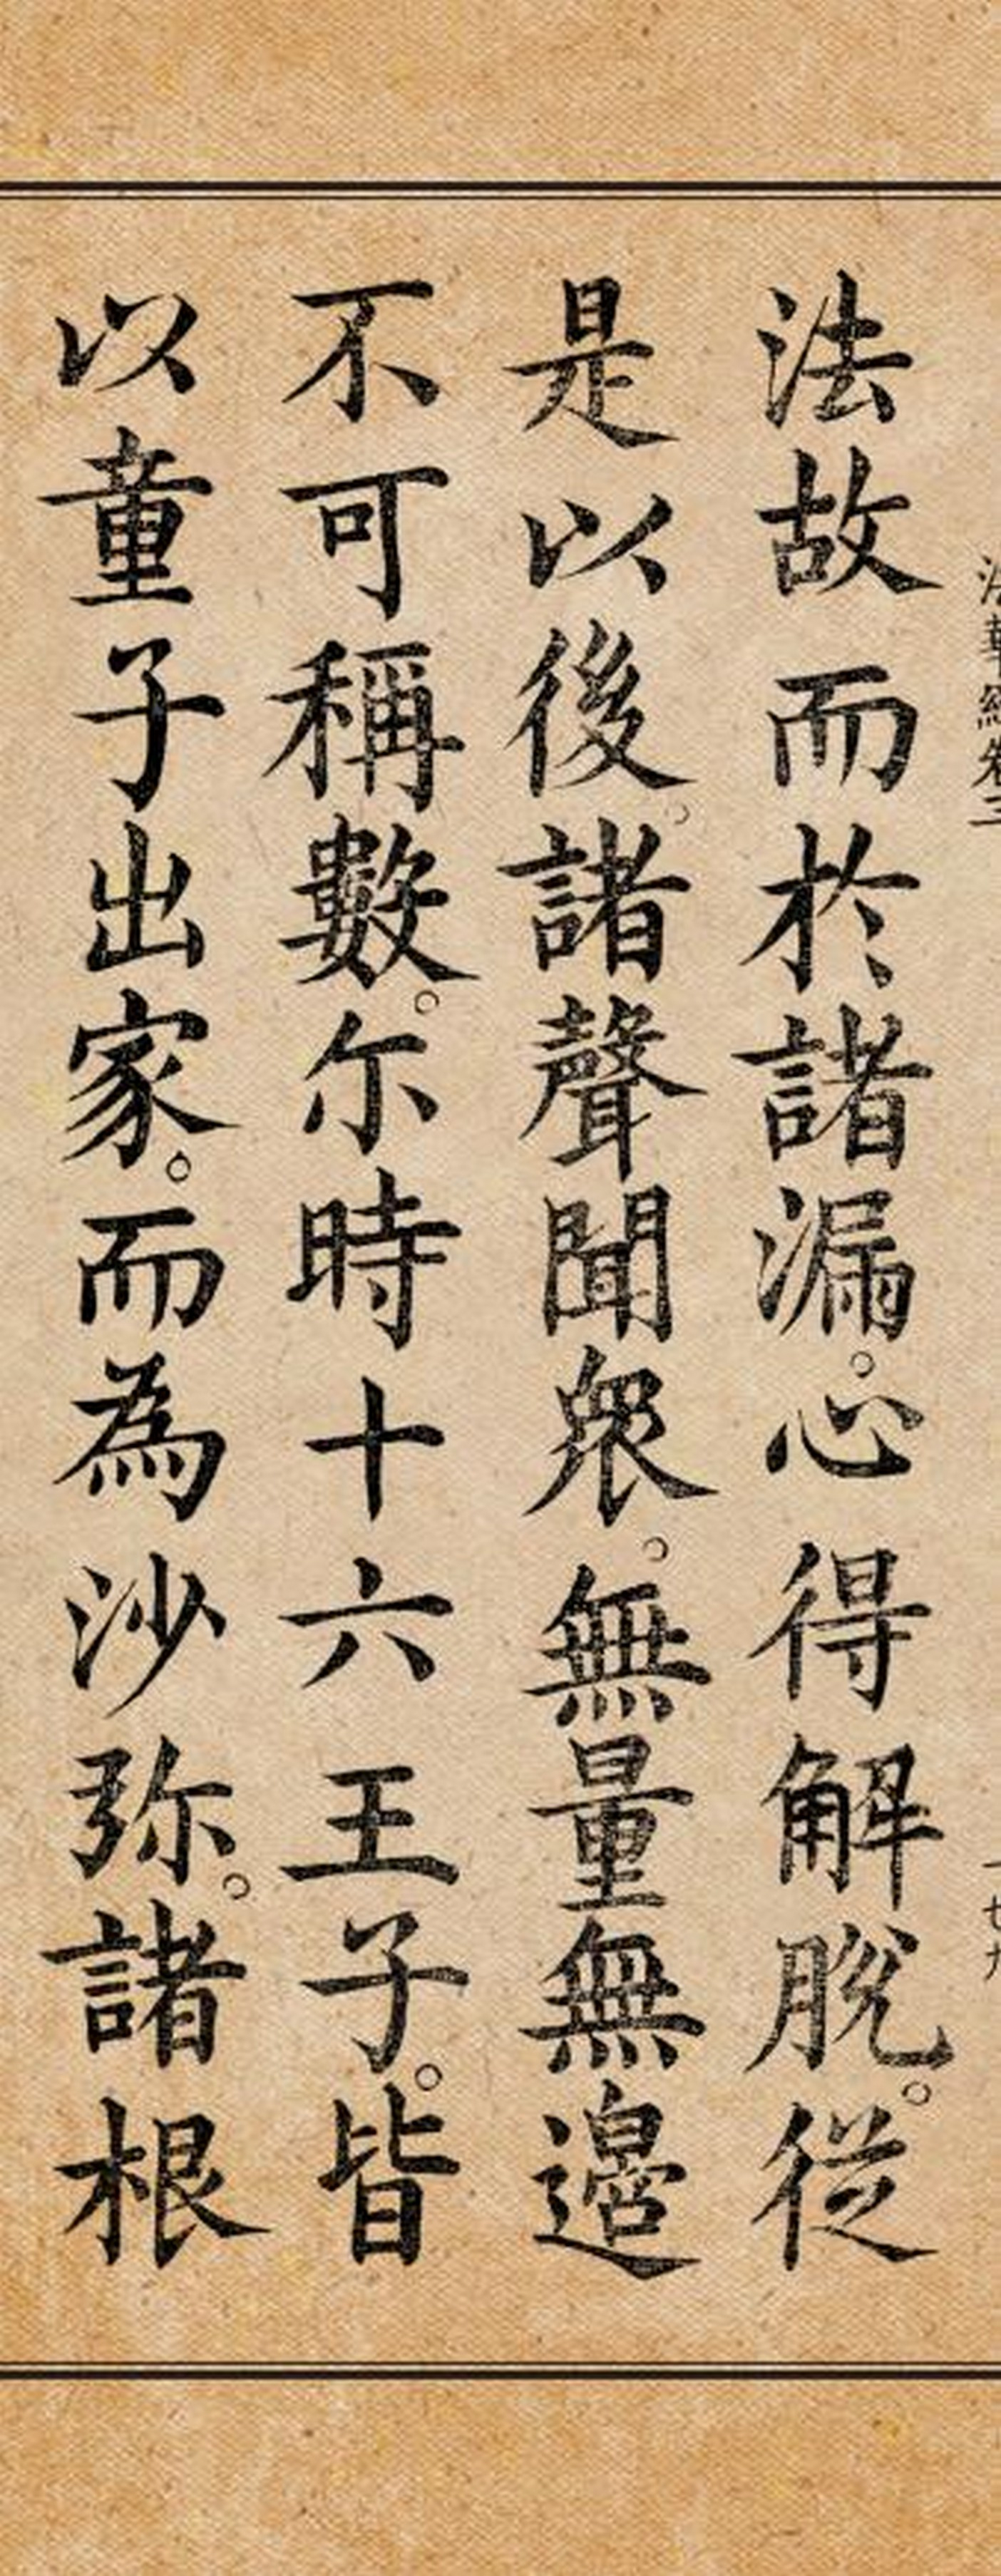 法華經卷三
法故而於諸漏。心得解脫。從
是以後。諸聲聞眾。無量無邊
不可稱數。尔時十六王子。皆
以童子出家。而為沙弥。諸根